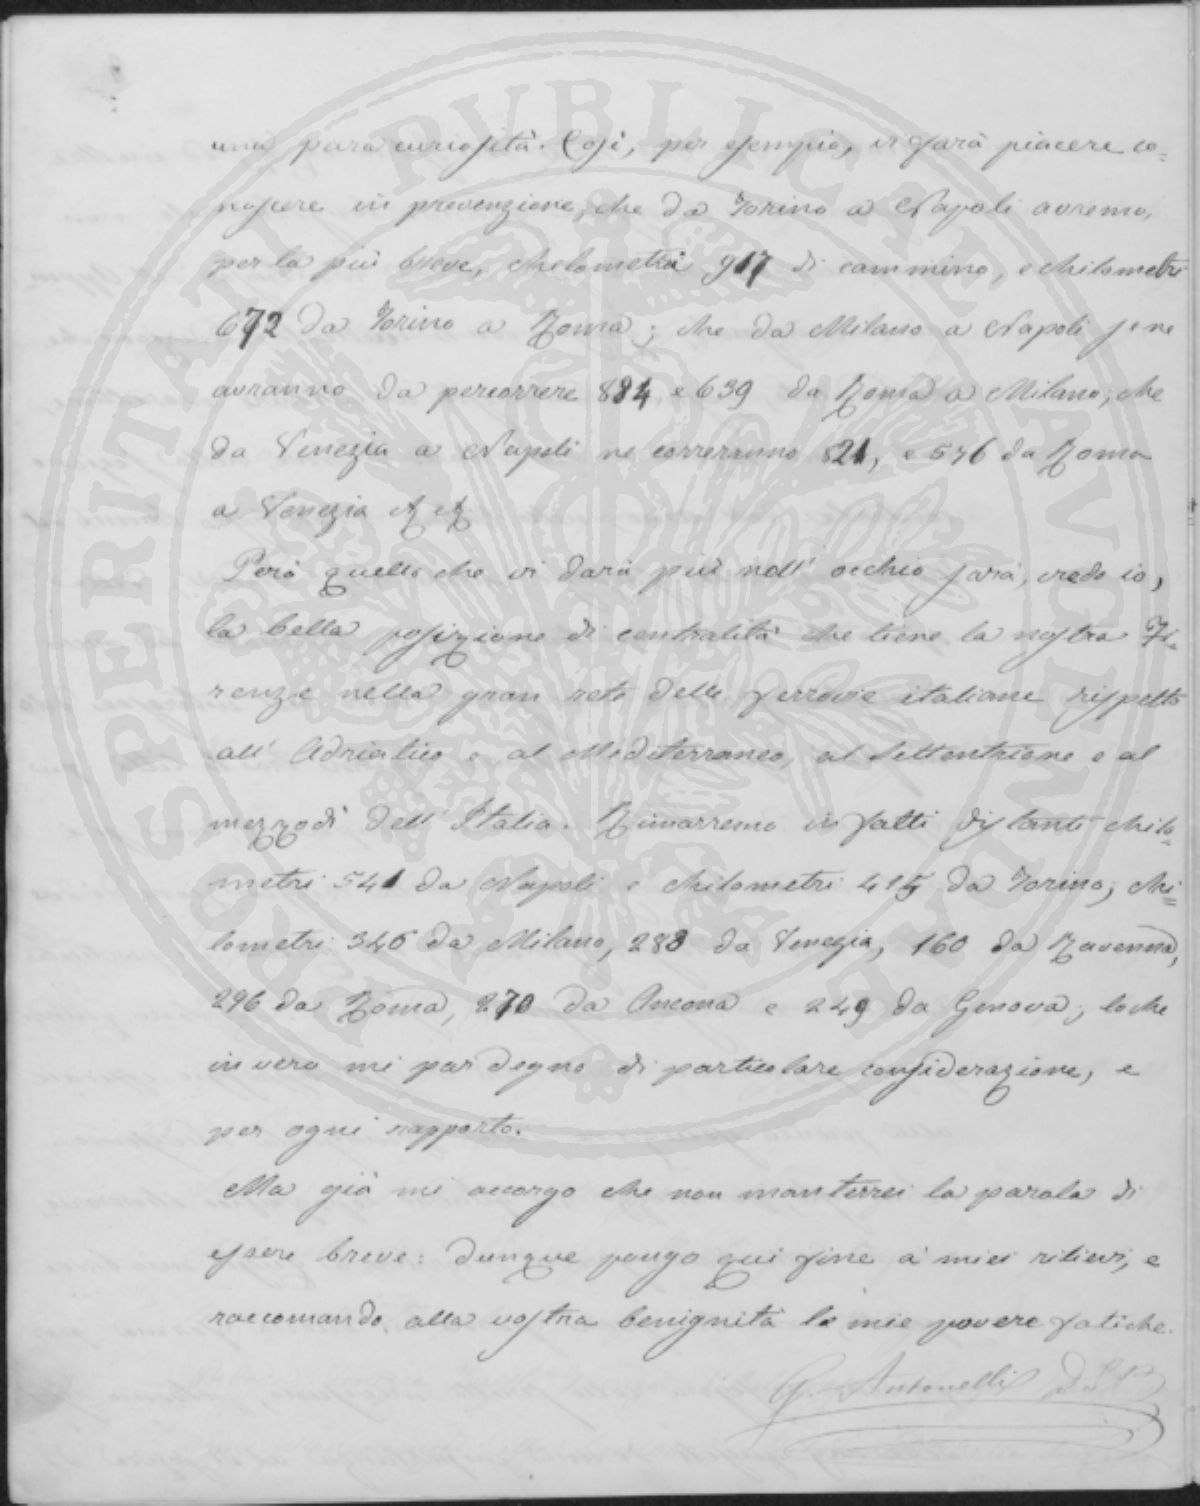 una pura curiosità. Così, per esempio, vi sarà piacere co=
noscere in prevenzione, che da Torino a Napoli avremo,
per la più breve, chilometri 917 di cammino, e chilometri
672 da Torino a Roma; che da Milano a Napoli se ne
avranno da percorrere 884 e 639 da Roma a Milano; che
da Venezia a Napoli ne correranno 821, e 576 da Roma
a Venezia
Però quello che vi darà più nell' occhio sarà, credo io,
la bella posizione di centralità che tiene la nostra Fi=
renze nella gran rete delle ferrovie italiane rispetto
all' Adriatico e al Mediterraneo, al Settentrione e al
mezzodì dell' Italia. Rimarremo in fatti distanti chilo=
metri 541 da Napoli e chilometri 415 da Torino; chi=
lometri 346 da Milano, 288 da Venezia, 160 da Ravenna,
296 da Roma, 270 da Ancona e 249 da Genova; loche
in vero mi par degno di particolare considerazione, e
per ogni rapporto.
Ma già mi accorgo che non manterrei la parola di
essere breve: dunque pongo qui fine a' miei rilievi, e
raccomando alla vostra benignità le mie povere fatiche.
G. Antonelli D.S.P.
PROSPERITATI PVBLICAE AVGENDAE